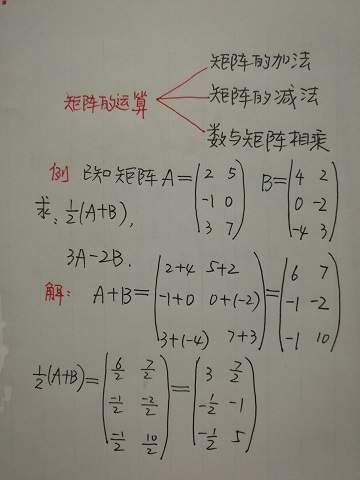 矩阵的加法
矩阵的运算
矩阵的减法
数与矩阵相乘
例 已知矩阵A=(2 5; -1 0; 3 7) B=(4 2; 0 -2; -4 3)
求: 1/2(A+B),
3A-2B.
解: A+B=(2+4 5+2; -1+0 0+(-2); 3+(-4) 7+3)=(6 7; -1 -2; -1 10)
1/2(A+B)=(6/2 7/2; -1/2 -2/2; -1/2 10/2)=(3 7/2; -1/2 -1; -1/2 5)